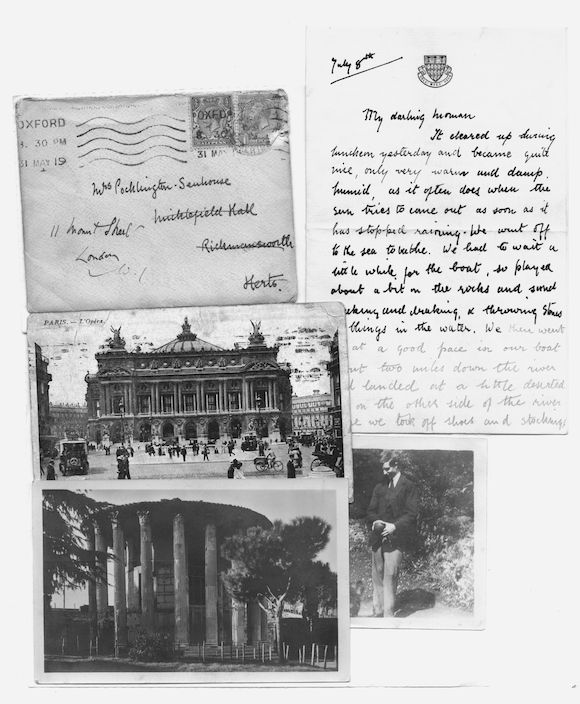 OXFORD
8. 30 PM
31 MAY 19
OXFD
8. 30
31 MAY
Mrs Pocklington-Senhouse
Mittlefield Hall
11 Mount Street
Rickmansworth
London
W.1
Herts.
PARIS. — L'Opéra
July 8th
My darling Moman
It cleared up during
luncheon yesterday and became quite
nice, only very warm and damp,
humid, as it often does when the
sun tries to come out as soon as it
has stopped raining. We went off
to the sea to bathe. We had to wait a
little while for the boat, so played
about a bit on the rocks and sand
and & throwing stones
things in the water. We then went
at a good pace in our boat
two miles down the river
landed at a little deserted
on the other side of the river
we took off shoes and stockings